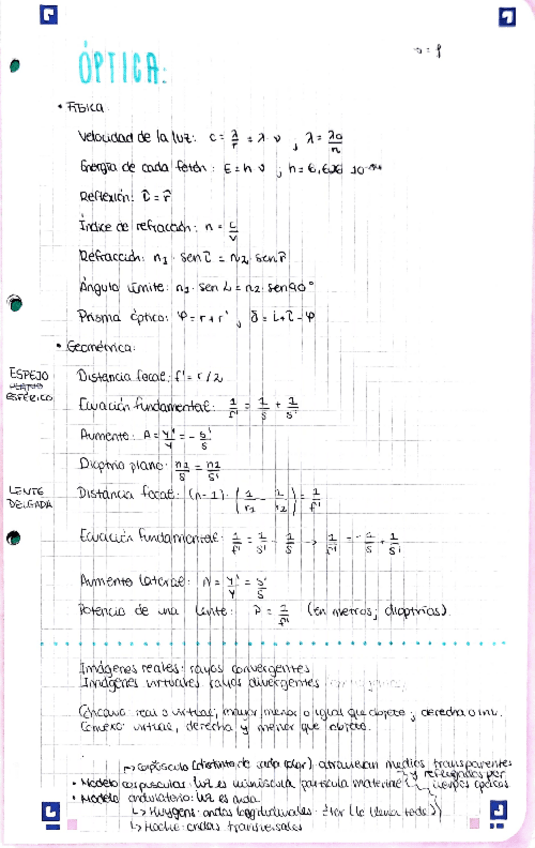 ÓPTICA:
• FÍSICA
Velocidad de la luz: c = λ/T = λ · ν ; λ = λ0/n
Energía de cada fotón: E = h ν ; h = 6,626 10
Reflexión: î = r̂
Índice de refracción: n = c/v
Refracción: n1 · sen î = n2 · sen r̂
Ángulo límite: n1 · sen L = n2 · sen 90°
Prisma óptico: φ = r + r' , δ = i + i - φ
• Geométrica:
ESPEJO ESFÉRICO
Distancia focal: f' = r/2
Ecuación fundamental: 1/f' = 1/s + 1/s'
Aumento: A = y'/y = - s'/s
Dioptrio plano: n1/s = n2/s'
LENTE DELGADA
Distancia focal: (n-1) · (1/r1 - 1/r2) = 1/f'
Ecuación fundamental: 1/f' = 1/s' - 1/s → 1/f' = - 1/s + 1/s'
Aumento lateral: A = y'/y = s'/s
Potencia de una lente: P = 1/f' (en metros; dioptrías)
Imágenes reales: rayos convergentes
Imágenes virtuales: rayos divergentes
Cóncavo: real o virtual, mayor, menor o igual que objeto; derecha o inv.
Convexo: virtual, derecha y menor que objeto.
↱ corpúsculo (distinto de cada color) atraviesan medios transparentes
y reflejados por cuerpos opacos
• Modelo corpuscular: luz es minúscula partícula material
• Modelo ondulatorio: luz es onda
↳ Huygens: ondas longitudinales: éter (lo llena todo)
↳ Hooke: ondas transversales